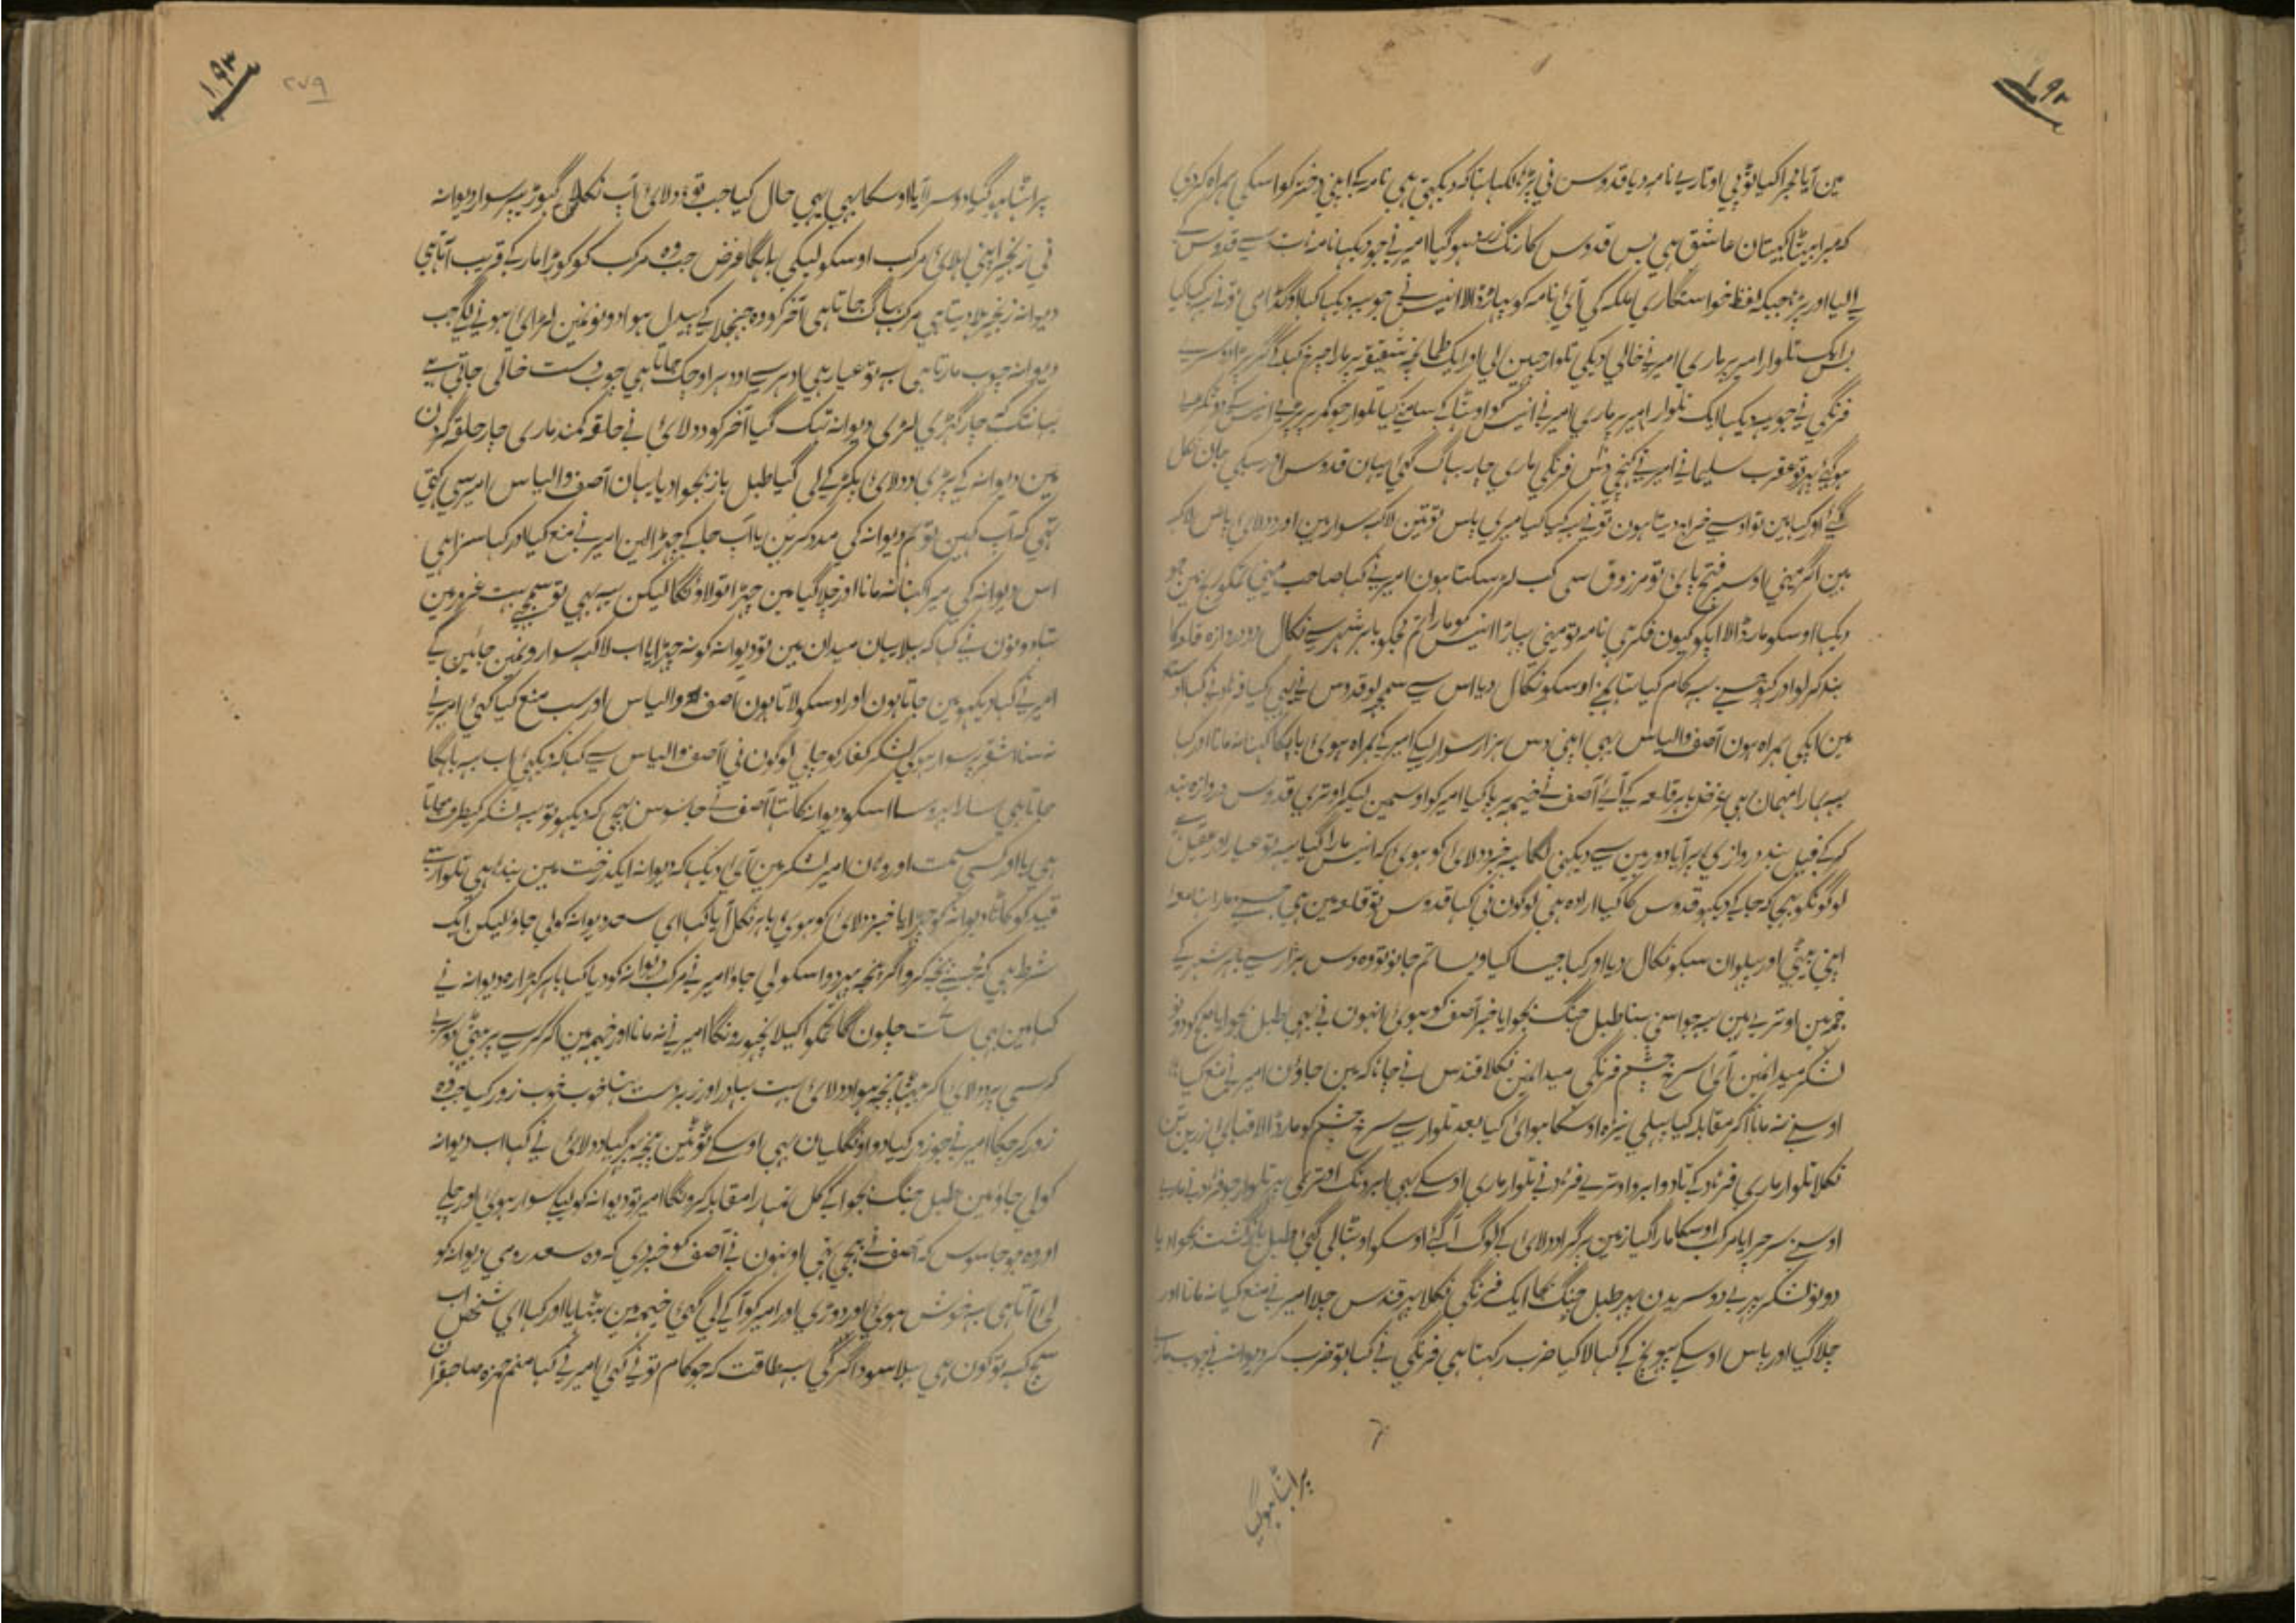 ۱۹۲
مین آیا مجرا کیا ٹوپی اوتاری نامہ دیا قدوس نی پڑہا لکہا تہا کہ دیکہتی ہی نامہ کے اپنی دختر کو اسکی ہمراہ کردی
کہ میرا بیٹا کپتان عاشق ہی بس قدوس کا رنگ زرد ہوگیا امیر نے جو دیکہا نامہ قدوس کے
لیا اور پڑہا جبکہ لفظ خواستگاری ملکہ کی آئی نامہ کو پہاڑ ڈالا انیس نے جو یہ دیکہا کہا او گڈامی تو نے یہ کیا کیا
بس ایک تلوار امیر پر ماری امیر نے خالی دیکی تلوار چہین لی اور ایک طمانچہ شقیقہ پر مارا چرخ کہا کے گر پڑا دوسرے
فرنگی نے جو یہ دیکہا ایک تلوار امیر پر ماری امیر نے انیس کو اوٹہا کے سامنے کیا تلوار جو کمر پر پڑی انیس کے دو ٹکڑے
ہوگئے پہر تو عقرب سلیمانے امیر نے کہنچی دس فرنگی ماری چار بہاگ گئی یہان قدوس اور سبکی جان نکل
گئے اور کہا مین تو اوسے خراج دیتا ہون تو نے یہ کیا کیا میری پاس تو تین لاکہ سوار ہین اور دولای پاس لاکہ
ہین اگر مینی اوسپر فتح پائی تو مرزوق سی کب لڑ سکتا ہون امیر نے کہا صاحب مینی تمکو رنج مین جو
دیکہا اوسکو مار ڈالا اپکو کیون فکر ہی نامہ تو مینی پہاڑا انیس کو مارا تم مجکو باہر شہر سے نکال دو دروازہ قلعہ کا
بند کر لو اور کہو جسنے یہ کام کیا تہا ہمنے اوسکو نکال دیا اس سے سمجہ لو قدوس نے یہی کیا
مین اپکی ہمراہ ہون آصف و الیاس بہی اپنی دس ہزار سوار لیکے امیر کے ہمراہ ہوئی باپکا کہنا نہ مانا اور کہا
یہ ہمارا مہمان ہی غرض باہر قلعہ کے آئے آصف نے خیمہ برپا کیا امیر کو اوسمین لیکر اوتری قدوس دروازہ بند
کرکے فیل بند دروازی پر آیا دوربین سے دیکہنی لگا یہ خبر دولای کو ہوئی کہ انیس مارا گیا
لوگونکو بہیجا کہ جاکے دیکہو قدوس کا کیا ارادہ ہی لوگون نی کہا قدوس تو قلعہ مین ہی جسنے مارا تہا معہ
اپنی بیٹی اور پہلوان سبکو نکال دیا اور کہا جیسا کیا ویسا تم جانو تو وہ دس ہزار سے باہر شہر کے
خیمہ مین اوترے ہین یہ جو اسنی سنا طبل جنگ بجوایا خبر آصف کو ہوئی انہون نے بہی طبل بجوایا صبح کو دونو
لشکر میدانمین آئی سرخ چشم فرنگی میدانمین نکلا قندس نے چاہا کہ مین جاؤن امیر نے منع کیا
اوسنے نہ مانا آکر مقابلہ کیا پہلی نیزہ اوسکا ہوائی کیا بعد تلوار سے سرخ چشم کو مار ڈالا
نکلا تلوار ماری فرناد کے تا دو ابرو اوتری فرناد نے تلوار ماری اوسکے بہی ابرو تک اوتری پہر تلوار جو فرناد نے ماری
اوسنے سر چرایا مرکب اوسکا مارا گیا زمین پر گرا دولای کے لوگ آگئے اوسکو اوٹہا لی گئی طبل بازگشت بجوا دیا
دونو لشکر پہرے دوسریدن پہر طبل جنگ بجا ایک فرنگی نکلا پہر قندس چلا امیر نے منع کیا نہ مانا اور
چلا گیا اور پاس اوسکے پہونچ کے کہا لا کیا ضرب رکہتا ہی فرنگی نے کہا تو ضرب کر دیوانہ نے چوب ماری
پراٹہا ہوگیا
۱۹۳
۲۷۹
پراٹہا ہوگیا دوسرا آیا اوسکا بہی یہی حال کیا جب تو دولای آپ نکلا گہوڑے پر سوار دیوانہ
نی زنجیر اپنی ہلائی مرکب اوسکو لیکی بہاگا غرض جب وہ مرکب کو کوڑا مار کے قریب آتا ہی
دیوانہ زنجیر ہلا دیتا ہی مرکب بہاگ جاتا ہی آخر کو وہ جہنجہلا کے پیدل ہوا دونونمین لڑائی ہونے لگی جب
دیوانہ چوب مارتا ہی یہ تو عیار ہی ادہر سے اودہر اوچک جاتا ہی چوب دست خالی جاتی ہے
یہانتک کہ چار گہڑی لڑی دیوانہ تہک گیا آخر کو دولای نے حلقہ کمند ماری چار حلقہ گردن
مین دیوانہ کے پڑی دولای پکڑ کے لی گیا طبل باز بجوا دیا یہان آصف و الیاس امیر سی کہتی
تہی کہ آپ کہین تو ہم دیوانہ کی مدد کرین یا آپ جاکے چہڑا لین امیر نے منع کیا اور کہا سزا ہی
اس دیوانہ کی میرا کہنا نہ مانا اور چلا گیا مین چہڑا تو لاونگا لیکن یہ بہی تو سمجہے بہت غرور مین
تہا دونون نے کہا کہ بہلا یہان میدان مین تو دیوانہ کو نہ چہڑایا اب لاکہ سوارونمین جائین گے
امیر نے کہا دیکہو مین جاتا ہون اور اوسکو لاتا ہون آصف و الیاس اور سب منع کیا کئی امیر نے
نہ سنا اشقر پر سوار ہوکی لشکر کفار کو چلی لوگون نی آصف و الیاس سے کہا کہ دیکہی اب یہ بہاگا
جاتا ہی سارا بہروسا اسکو دیوانہ کا تہا آصف نے جاسوس بہیجی کہ دیکہو تو یہ لشکر کیطرف جاتا
ہی یا اور کسی سمت اور وہان امیر لشکر مین آئی دیکہا کہ دیوانہ ایک درخت مین بندہا ہی تلوار سے
قید کو کاٹا دیوانہ کو چہڑایا خبر دولای کو ہوئی باہر نکل آیا کہا ای سعد دیوانہ کو لی جاؤ لیکن ایک
شرط ہی کہ مجہسے پنجہ کرو اگر پنجہ پہیر دو اسکو لی جاؤ امیر نے مرکب دیوانہ کو دیا کہا باہر کہڑا رہ دیوانہ نے
کہا مین بہی سات چلون گا تمکو اکیلا نچہوڑونگا امیر نے نہ مانا اور خیمہ مین آکر کرسے پر بیٹہی دوسرے
کرسی پر دولای آکر بیٹہا پنجہ ہوا دولای بہت بہادر اور زبردست تہا خوب خوب زور کیا جب وہ
زور کر چکا امیر نے جو زور کیا دو اونگلیان بہی اوسکے ٹوٹین پنجہ پہر گیا دولای نے کہا اب دیوانہ
کو لی جاؤ مین طبل جنگ بجوا کے کل تمہارا مقابلہ کرونگا امیر تو دیوانہ کو لیکے سوار ہوئی اور چلے
اور وہ جو جاسوس کہ آصف نے بہیجی تہی اونہون نے آصف کو خبر دی کہ وہ سعد رومی دیوانہ کو
لی آتا ہی یہ خوش ہوئی اور دوڑی اور امیر کو آکے لی گئی خیمہ مین بٹہایا اور کہا ای شخص اب
سچ کہہ تو کون ہی بہلا سوداگر کی یہ طاقت کہ جو کام تو نے کئی امیر نے کہا منم حمزہ صاحبقران